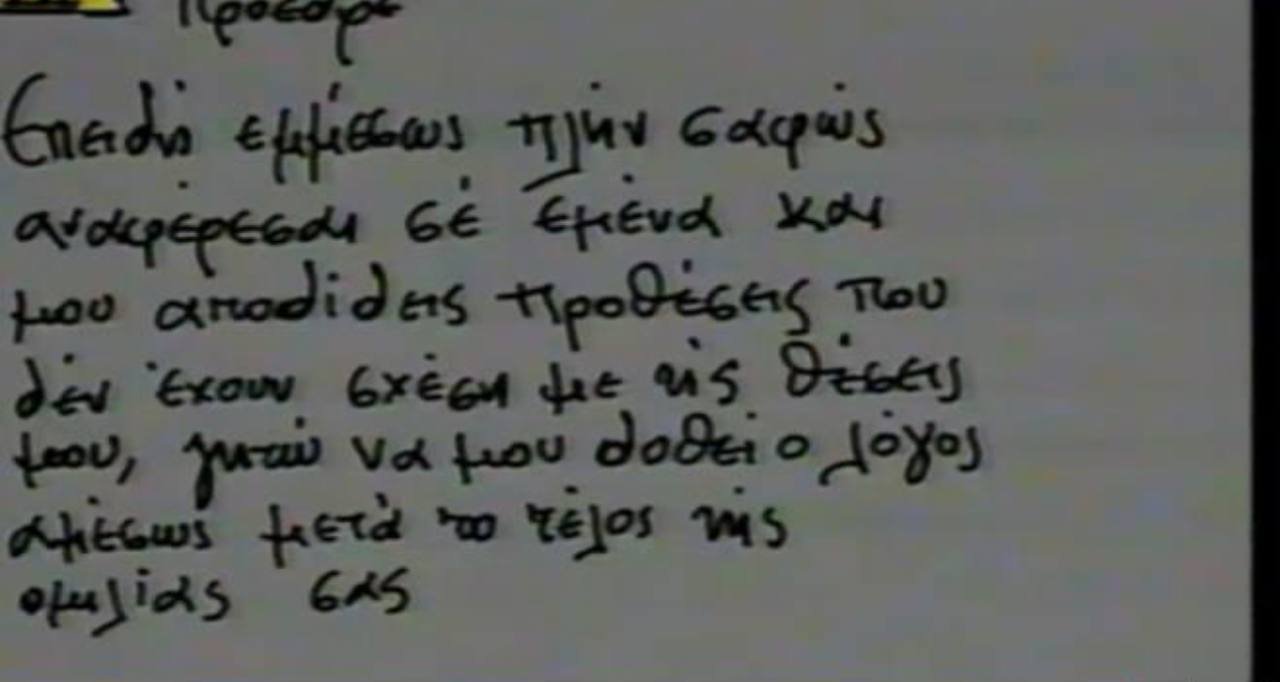 Πρόεδρε
Επειδή εμμέσως πλήν σαφώς
αναφέρεσαι σέ εμένα και
μου αποδίδεις προθέσεις που
δέν έχουν σχέση με τίς θέσεις
μου, ζητώ να μου δοθεί ο λόγος
αμέσως μετά το τέλος τής
ομιλίας σας